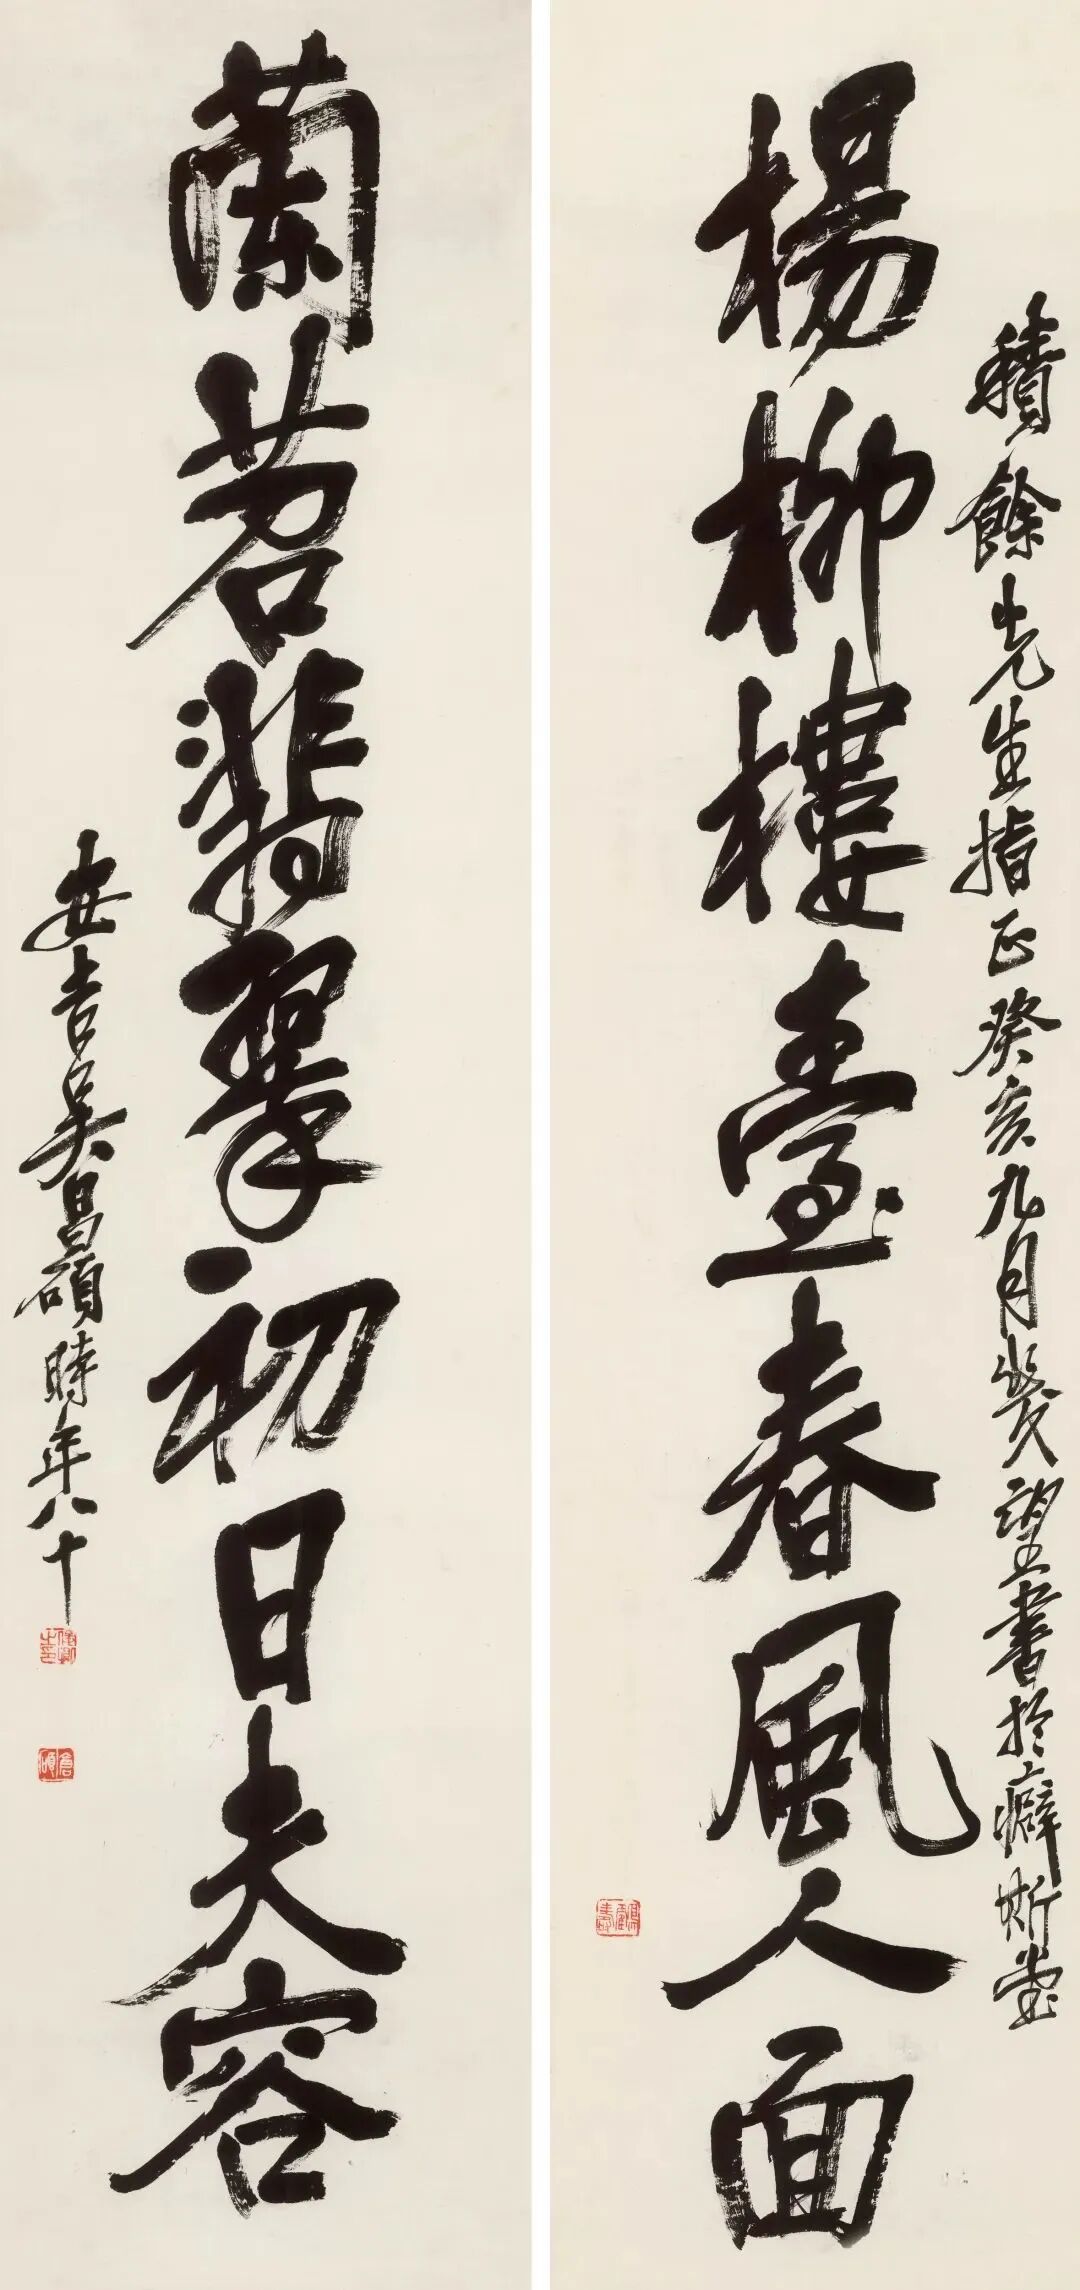 積餘先生指正癸亥九月幾望書於癖斯堂
楊柳樓臺春風人面
蘭苕翡翠初日夫容
安吉吳昌碩時年八十
俊卿之印
倉碩